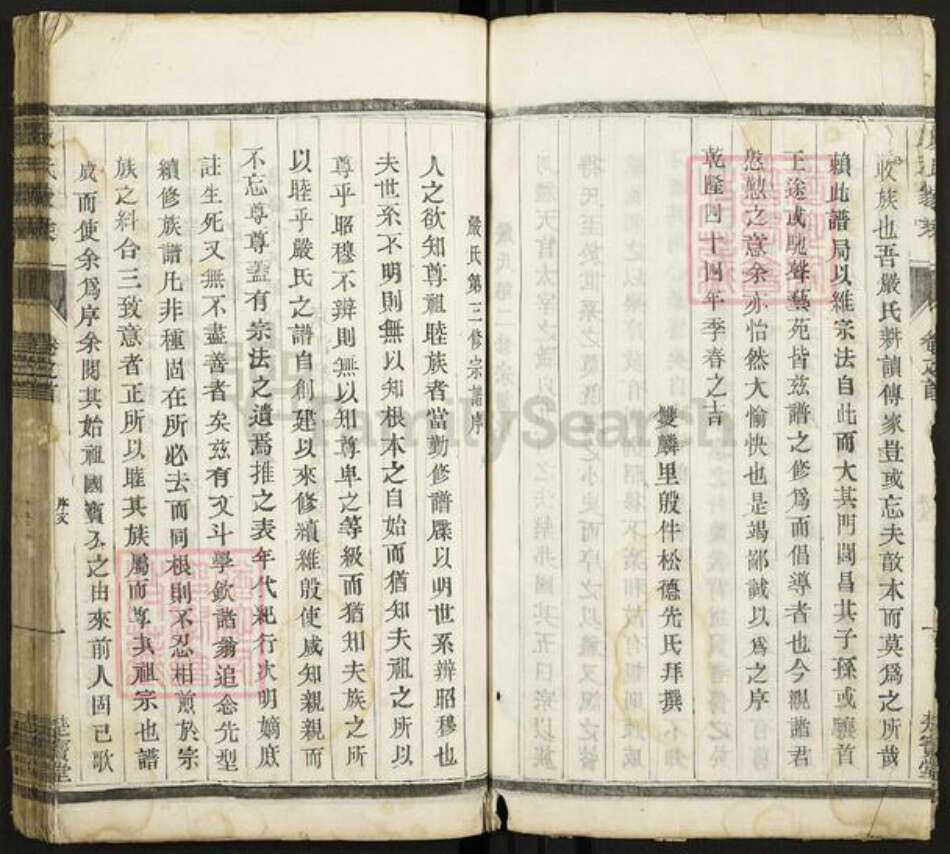 收族也吾嚴氏耕讀傳家豈或忘夫敵本而莫爲之所哉
賴此譜局以維宗法自此而大其門閭昌其子孫或驤首
王途或馳聲藝苑皆兹譜之修爲而倡導者也今親諸君
慇懃之意余亦怡然大愉快也是竭鄙誠以爲之序
乾隆四十四年季春之吉
雙驎里殷件松德先氏拜撰
嚴氏第三修宗譜序
人之欲知尊祖睦族者當勤修譜牒以明世系辨昭穆也
夫世系不明則無以知根本之自始而猶知夫祖之所以
尊乎昭穆不辨則無以知尊卑之等級而猶知夫族之所
以睦乎嚴氏之譜自創建以來修續維殷使咸知親親而
不忘尊尊蓋有宗法之遺焉推之表年代紀行次明嫡庶
註生死又無不盡善者矣兹有文斗學欽諸翁追念先型
續修族譜凡非種固在所必去而同根則不忍相煎於宗
族之糾合三致意者正所以睦其族屬而尊其祖宗也譜
成而使余爲序余閱其始祖國寶公之由來前人固已歌
卷之首
序文
FamilySearch